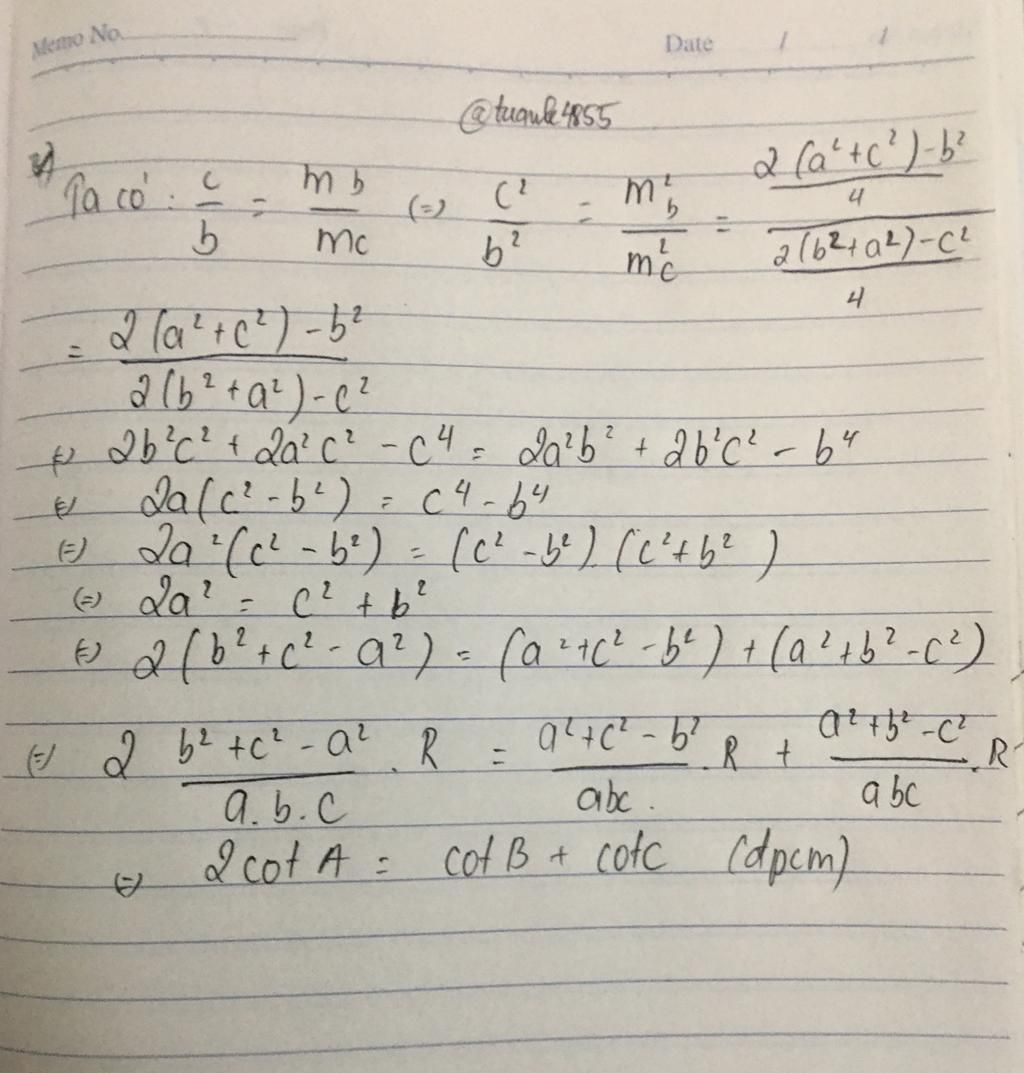 Memo No.
Date / /
@tuqule4855
Ta có : c/b = mb/mc (=) c²/b² = m²b/m²c = (2(a²+c²)-b²)/4 / (2(b²+a²)-c²)/4
= 2(a²+c²)-b² / 2(b²+a²)-c²
(=) 2b²c² + 2a²c² - c⁴ = 2a²b² + 2b²c² - b⁴
(=) 2a(c²-b²) = c⁴-b⁴
(=) 2a²(c²-b²) = (c²-b²).(c²+b²)
(=) 2a² = c²+b²
(=) 2(b²+c²-a²) = (a²+c²-b²)+(a²+b²-c²)
(=) 2 b²+c²-a²/a.b.c . R = a²+c²-b²/abc . R + a²+b²-c²/abc . R
(=) 2cot A = cot B + cotC (dpcm)